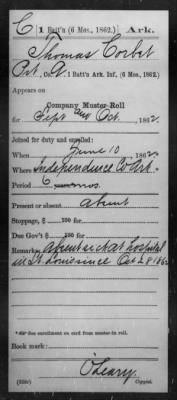 C | 1 Batt'n (6 Mos., 1862.) | Ark.
Thomas Corbet
Pvt., Co. , 1 Batt'n Ark. Inf., (6 Mos., 1862.)
Appears on
Company Muster Roll
for Sept and Oct., 1862.
Joined for duty and enrolled:
When June 10, 1862
Where Independence Co Ark.
Period 6 mos.
Present or absent absent
Stoppage, $ 100 for
Due Gov't $ 100 for
Remarks: Absent sick at hospital
in St. Louis since Oct 28 1862
* See enrollment on card from muster-in roll.
Book mark:
O'Leary.
Copyist.